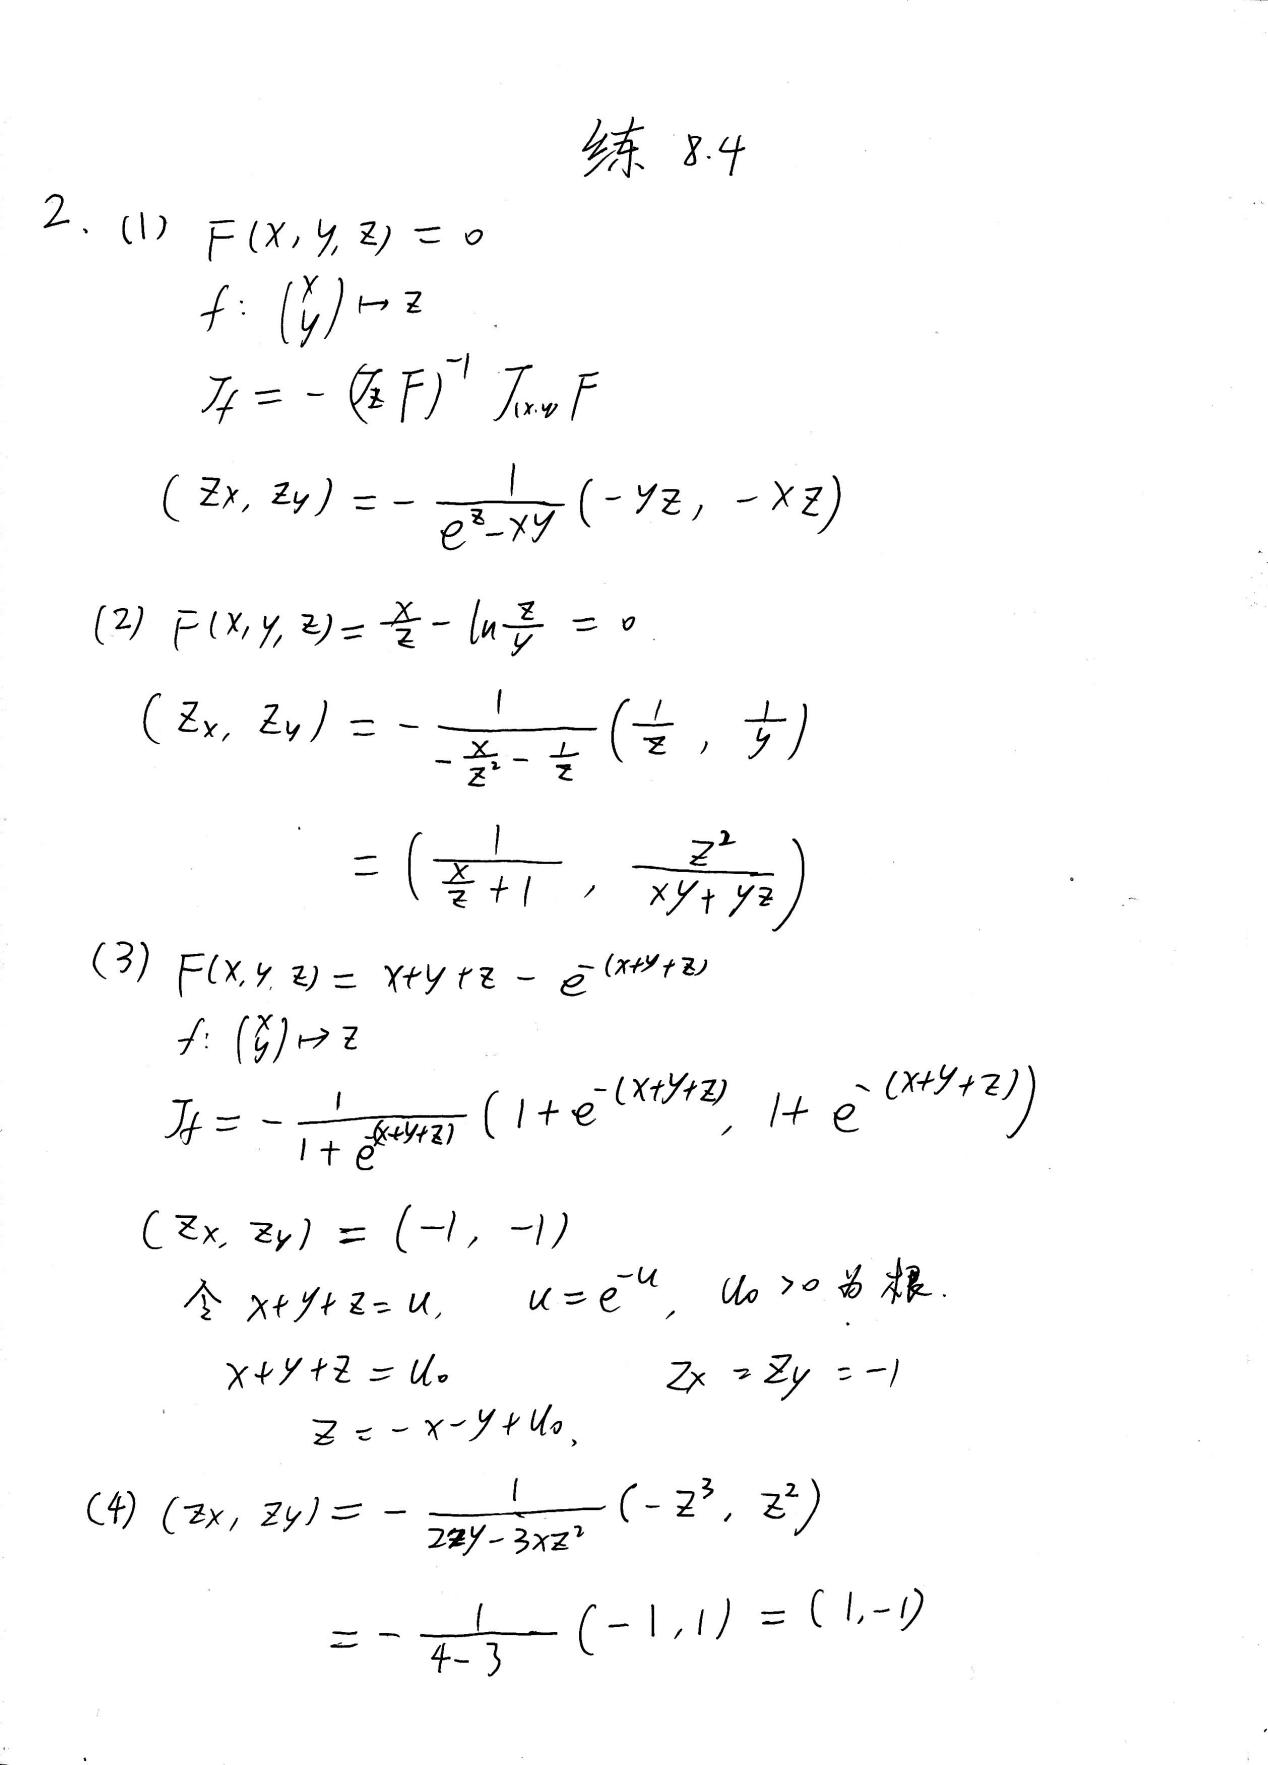 练 8.4
2. (1) F(x, y, z) = 0
f: (x y) ↦ z
J_f = - (J_z F)^{-1} J_{(x,y)} F
(z_x, z_y) = - \frac{1}{e^z - xy} (-yz, -xz)
(2) F(x, y, z) = \frac{x}{z} - ln \frac{z}{y} = 0
(z_x, z_y) = - \frac{1}{-\frac{x}{z^2} - \frac{1}{z}} (\frac{1}{z}, \frac{1}{y})
= (\frac{1}{\frac{x}{z} + 1}, \frac{z^2}{xy + yz})
(3) F(x, y, z) = x+y+z - e^{-(x+y+z)}
f: (x y) ↦ z
J_f = - \frac{1}{1 + e^{-(x+y+z)}} (1 + e^{-(x+y+z)}, 1 + e^{-(x+y+z)})
(z_x, z_y) = (-1, -1)
令 x+y+z = u, u = e^{-u}, u_0 > 0 为根.
x+y+z = u_0 z_x = z_y = -1
z = -x-y+u_0,
(4) (z_x, z_y) = - \frac{1}{2zy - 3xz^2} (-z^3, z^2)
= - \frac{1}{4-3} (-1, 1) = (1, -1)